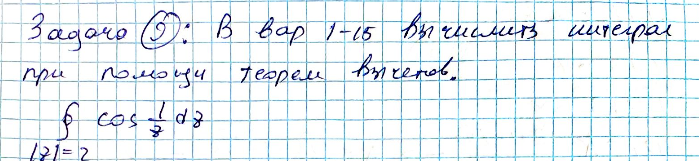 Задача ⑤: В вар 1-15 вычислить интеграл
при помощи теорем вычетов.
∮ cos 1/z dz
|z|=2